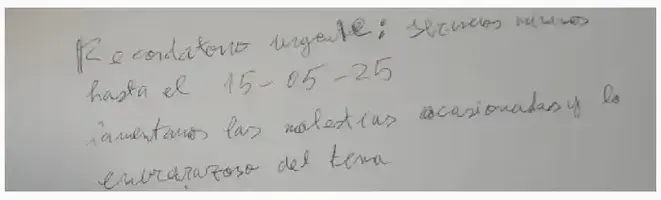 Recordatorio urgente: servicios mínimos
hasta el 15-05-25
lamentamos las molestias ocasionadas y lo
embarazoso del tema